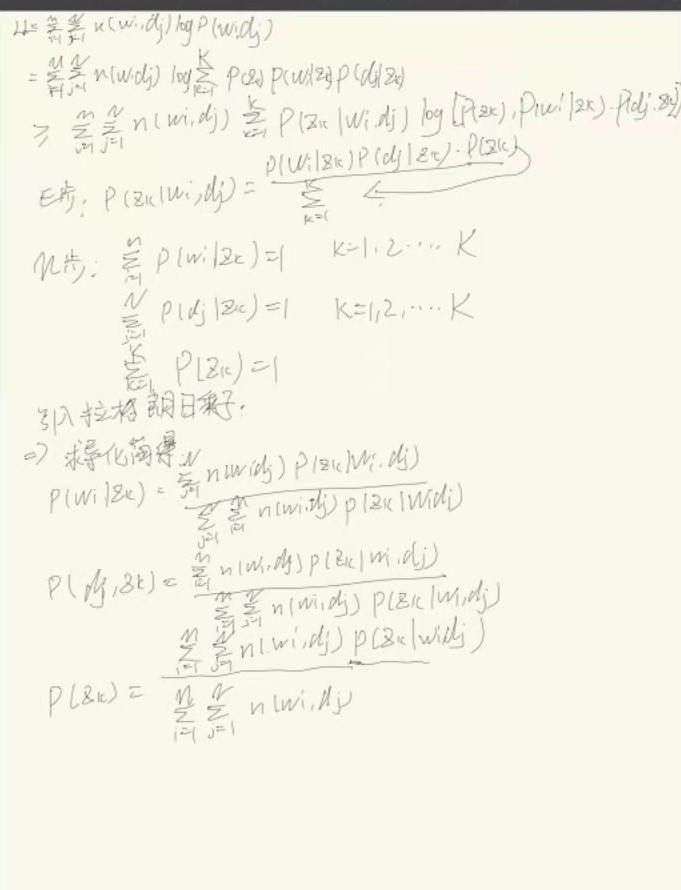 LL = ∑_{i=1}^{M} ∑_{j=1}^{N} n(wi,dj) log P(wi,dj)
= ∑_{i=1}^{M} ∑_{j=1}^{N} n(wi,dj) log ∑_{k=1}^{K} P(zk) P(wi|zk) P(dj|zk)
≥ ∑_{i=1}^{M} ∑_{j=1}^{N} n(wi,dj) ∑_{k=1}^{K} P(zk|wi,dj) log [P(zk),P(wi|zk)·P(dj,zk)]
E步: P(zk|wi,dj) = P(wi|zk)P(dj|zk)·P(zk) / ∑_{k=1}^{K}
M步: ∑_{i=1}^{M} P(wi|zk)=1 K=1,2....K
∑_{j=1}^{N} P(dj|zk)=1 K=1,2,....K
∑_{k=1}^{K} P(zk)=1
引入拉格朗日乘子.
=> 求导化简得
P(wi|zk) = ∑_{j=1}^{N} n(wi,dj) P(zk|wi,dj) / ∑_{j=1}^{N} ∑_{i=1}^{M} n(wi,dj) P(zk|wi,dj)
P(dj,zk) = ∑_{i=1}^{M} n(wi,dj) P(zk|wi,dj) / ∑_{i=1}^{M} ∑_{j=1}^{N} n(wi,dj) P(zk|wi,dj)
P(zk) = ∑_{i=1}^{M} ∑_{j=1}^{N} n(wi,dj) P(zk|wi,dj) / ∑_{i=1}^{M} ∑_{j=1}^{N} n(wi,dj)